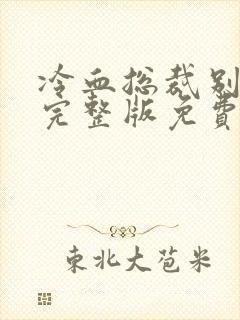 冷血总裁别
完整版免费
東北大苞米